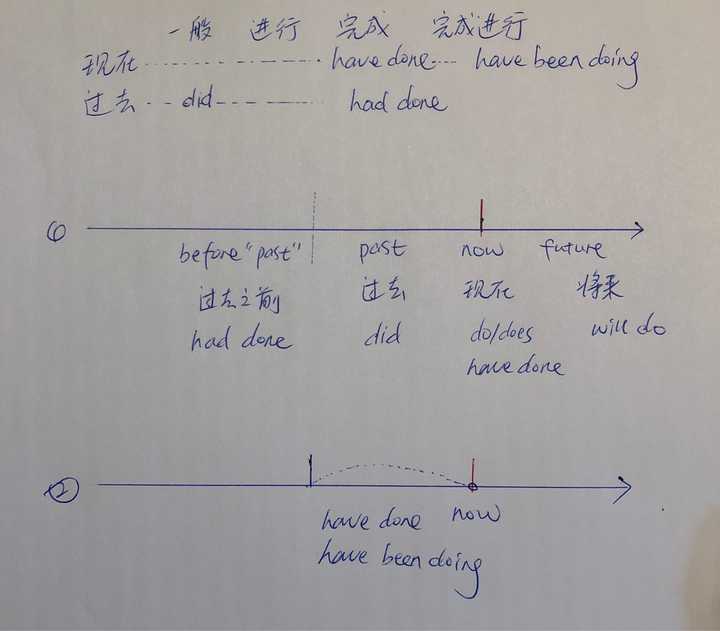 一般 进行 完成 完成进行
现在 have done have been doing
过去 did had done
① before "past" past now future
过去之前 过去 现在 将来
had done did do/does will do
have done
②
have done now
have been doing